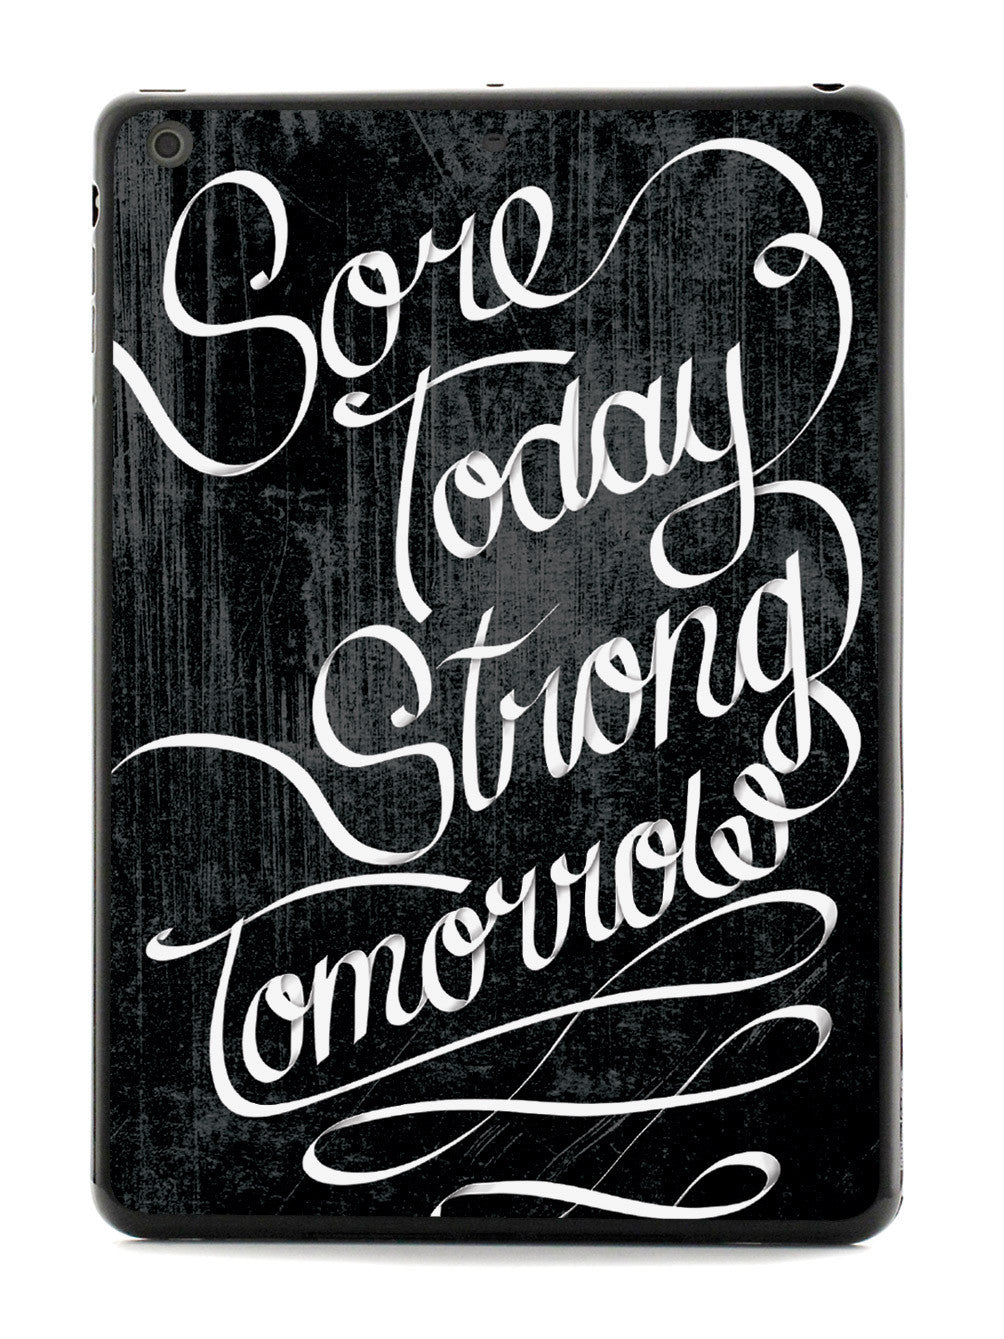 Sore
Today
Strong
Tomorrow